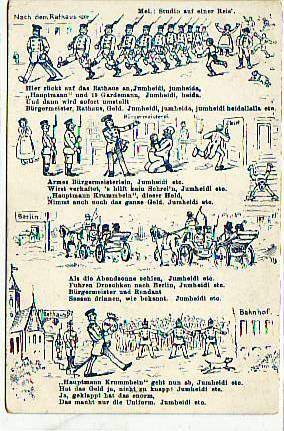 Nach dem Rathaus
Mel.: Studio auf einer Reis'.
Hier rückt auf das Rathaus an, Jumheidi, jumheida,
„Hauptmann" und 12 Gardemann, Jumheidi, heida.
Und dann wird sofort umstellt
Bürgermeister, Rathaus, Geld. Jumheidi, jumheida, jumheidi heidallalla etc.
Bürgermeisterei.
Armes Bürgermeisterlein, Jumheidi etc.
Wirst verhaftet, 's hilft kein Schrei'n, Jumheidi etc.
„Hauptmann Krummbein" dieser Held,
Nimmt auch noch das ganze Geld. Jumheidi etc.
Berlin.
Als die Abendsonne schien, Jumheidi etc.
Fuhren Droschken nach Berlin, Jumheidi etc.
Bürgermeister und Rendant
Sassen drinnen, wie bekannt. Jumheidi etc.
Rathaus
Bahnhof.
„Hauptmann Krummbein" geht nun ab, Jumheidi etc.
Hat das Geld ja, nicht zu knapp! Jumheidi etc.
Ja, geklappt hat das enorm,
Das macht nur die Uniform. Jumheidi etc.